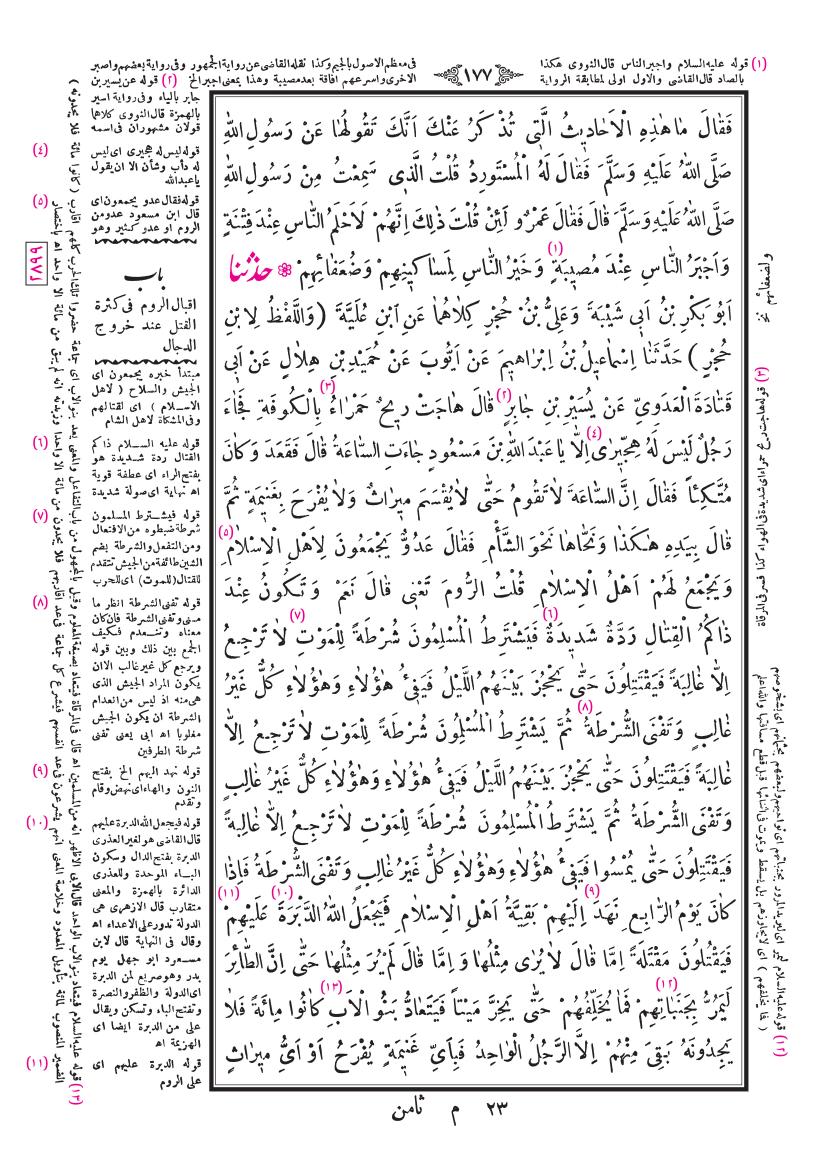 (١) قوله عليه السلام واجبر الناس قال النووى هكذا فى معظم الاصول بالجيم وكذا نقله القاضى عن رواية الجمهور وفى رواية بعضهم واصبر
بالصاد قال القاضى والاول اولى لمطابقة الرواية الاخرى واسرعهم افاقة بعد مصيبة وهذا بمعنى اجبر الخ
١٧٧
فَقَالَ مَا هٰذِهِ الْاَحَادِيثُ الَّتِى تُذْكَرُ عَنْكَ اَنَّكَ تَقُولُهَا عَنْ رَسُولِ اللهِ
صَلَّى اللهُ عَلَيْهِ وَسَلَّمَ فَقَالَ لَهُ الْمُسْتَوْرِدُ قُلْتُ الَّذِى سَمِعْتُ مِنْ رَسُولِ اللهِ
صَلَّى اللهُ عَلَيْهِ وَسَلَّمَ قَالَ فَقَالَ عَمْرٌو لَئِنْ قُلْتَ ذٰلِكَ اِنَّهُمْ لَاَحْلَمُ النَّاسِ عِنْدَ فِتْنَةٍ
وَاَجْبَرُ النَّاسِ عِنْدَ مُصِيبَةٍ (١) وَخَيْرُ النَّاسِ لِمَسَاكِينِهِمْ وَضُعَفَائِهِمْ ❁ حَدَّثَنَا
اَبُو بَكْرِ بْنُ اَبِى شَيْبَةَ وَعَلِىُّ بْنُ حُجْرٍ كِلَاهُمَا عَنِ ابْنِ عُلَيَّةَ (وَاللَّفْظُ لِابْنِ
حُجْرٍ) حَدَّثَنَا اِسْمَاعِيلُ بْنُ اِبْرَاهِيمَ عَنْ اَيُّوبَ عَنْ حُمَيْدِ بْنِ هِلَالٍ عَنْ اَبِى
قَتَادَةَ الْعَدَوِىِّ عَنْ يُسَيْرِ بْنِ جَابِرٍ (٢) قَالَ هَاجَتْ رِيحٌ حَمْرَاءُ (٣) بِالْكُوفَةِ فَجَاءَ
رَجُلٌ لَيْسَ لَهُ هِجِّيرَى (٤) اِلَّا يَا عَبْدَ اللهِ بْنَ مَسْعُودٍ جَاءَتِ السَّاعَةُ قَالَ فَقَعَدَ وَكَانَ
مُتَّكِئًا فَقَالَ اِنَّ السَّاعَةَ لَا تَقُومُ حَتَّى لَا يُقْسَمَ مِيرَاثٌ وَلَا يُفْرَحَ بِغَنِيمَةٍ ثُمَّ
قَالَ بِيَدِهِ هٰكَذَا وَنَحَّاهَا نَحْوَ الشَّأْمِ فَقَالَ عَدُوٌّ يَجْمَعُونَ لِاَهْلِ الْاِسْلَامِ (٥)
وَيَجْمَعُ لَهُمْ اَهْلُ الْاِسْلَامِ قُلْتُ الرُّومَ تَعْنِى قَالَ نَعَمْ وَتَكُونُ عِنْدَ
ذَاكُمُ الْقِتَالِ رَدَّةٌ شَدِيدَةٌ (٦) فَيَشْتَرِطُ الْمُسْلِمُونَ شُرْطَةً (٧) لِلْمَوْتِ لَا تَرْجِعُ
اِلَّا غَالِبَةً فَيَقْتَتِلُونَ حَتَّى يَحْجُزَ بَيْنَهُمُ اللَّيْلُ فَيَفِىءُ هٰؤُلَاءِ وَهٰؤُلَاءِ كُلٌّ غَيْرُ
غَالِبٍ وَتَفْنَى الشُّرْطَةُ (٨) ثُمَّ يَشْتَرِطُ الْمُسْلِمُونَ شُرْطَةً لِلْمَوْتِ لَا تَرْجِعُ اِلَّا
غَالِبَةً فَيَقْتَتِلُونَ حَتَّى يَحْجُزَ بَيْنَهُمُ اللَّيْلُ فَيَفِىءُ هٰؤُلَاءِ وَهٰؤُلَاءِ كُلٌّ غَيْرُ غَالِبٍ
وَتَفْنَى الشُّرْطَةُ ثُمَّ يَشْتَرِطُ الْمُسْلِمُونَ شُرْطَةً لِلْمَوْتِ لَا تَرْجِعُ اِلَّا غَالِبَةً
فَيَقْتَتِلُونَ حَتَّى يُمْسُوا فَيَفِىءُ هٰؤُلَاءِ وَهٰؤُلَاءِ كُلٌّ غَيْرُ غَالِبٍ وَتَفْنَى الشُّرْطَةُ فَاِذَا
كَانَ يَوْمُ الرَّابِعِ نَهَدَ (٩) اِلَيْهِمْ بَقِيَّةُ اَهْلِ الْاِسْلَامِ فَيَجْعَلُ اللهُ (١٠) الدَّبْرَةَ عَلَيْهِمْ (١١)
فَيَقْتُلُونَ مَقْتَلَةً اِمَّا قَالَ لَا يُرَى مِثْلُهَا وَاِمَّا قَالَ لَمْ يُرَ مِثْلُهَا حَتَّى اِنَّ الطَّائِرَ
لَيَمُرُّ بِجَنَبَاتِهِمْ (١٢) فَمَا يُخَلِّفُهُمْ حَتَّى يَخِرَّ مَيْتًا فَيَتَعَادُّ بَنُو الْاَبِ (١٣) كَانُوا مِائَةً فَلَا
يَجِدُونَهُ بَقِىَ مِنْهُمْ اِلَّا الرَّجُلُ الْوَاحِدُ فَبِاَىِّ غَنِيمَةٍ يُفْرَحُ اَوْ اَىُّ مِيرَاثٍ
(٢) قوله عن يسير بن
جابر بالياء وفى رواية اسير
بالهمزة قال النووى كلاهما
قولان مشهوران فى اسمه
(٤) قوله ليس له هجيرى اى ليس
له دأب وشأن الا ان يقول
يا عبدالله
(٥) قوله فقال عدو يجمعون اى
قال ابن مسعود عدو من
الروم او عدو كثير وهو
٢٨٩٩
باب
اقبال الروم فى كثرة
القتل عند خروج
الدجال
مبتدأ خبره يجمعون اى
الجيش والسلاح (لاهل
الاسلام) اى لقتالهم
وفى المشكاة لاهل الشام
(٦) قوله عليه السلام ذاكم
القتال ردة شديدة هو
بفتح الراء اى عطفة قوية
اه نهاية اى صولة شديدة
(٧) قوله فيشترط المسلمون
شرطة ضبطوه من الافتعال
ومن التفعل والشرطة بضم
الشين طائفة من الجيش تتقدم
للقتال (للموت) اى للحرب
(٨) قوله تفنى الشرطة انظر ما
معنى وتفنى الشرطة فان كان
معناه وتنعدم فكيف
الجمع بين ذلك وبين قوله
ويرجع كل غير غالب الا ان
يكون المراد الجيش الذى
هى منه اذ ليس من انعدام
الشرطة ان يكون الجيش
مغلوبا اه ابى يعنى تفنى
شرطة الطرفين
(٩) قوله نهد اليهم الخ بفتح
النون والهاء اى نهض وقام
وتقدم
(١٠) قوله فيجعل الله الدبرة عليهم
قال القاضى هو لغير العذرى
الدبرة بفتح الدال وسكون
الباء الموحدة وللعذرى
الدائرة بالهمزة والمعنى
متقارب قال الازهرى هى
الدولة تدور على الاعداء اه
وقال فى النهاية قال لابن
مسعود ابو جهل يوم
بدر وهو صريع لمن الدبرة
اى الدولة والظفر والنصرة
وتفتح الباء وتسكن ويقال
على من الدبرة ايضا اى
الهزيمة اه
(١١) قوله الدبرة عليهم اى
على الروم
(٣) قوله هاجت ريح حمراء
(١٢) قوله عليه السلام
(١٣) قوله عليه السلام فيتعاد بنو الاب
٢٣ م ثامن